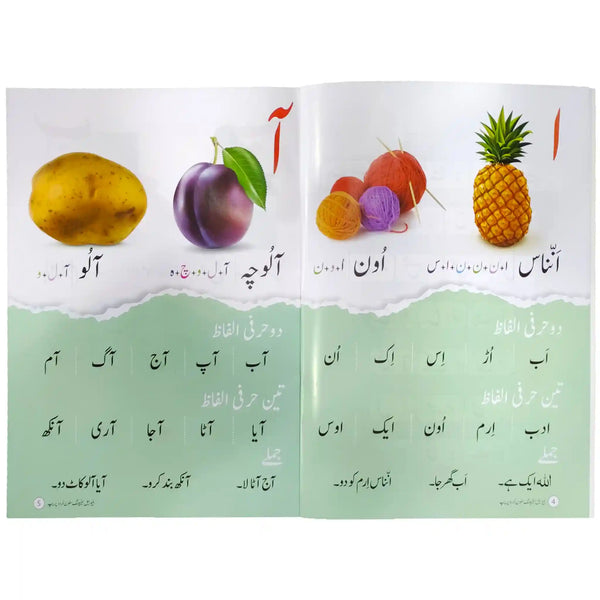 ا
اَنّناس ا+ن+ن+ن+ا+س اُون اُ+و+ن
دو حرفی الفاظ
اَب اُڑ اِس اِک اُن
تین حرفی الفاظ
ادب اِرم اُون ایک اوس
جملے
اللہ ایک ہے۔ اَب گھر جا۔ انناس اِرم کو دو۔
4
آ
آلُوچہ آ+ل+و+چ+ہ آلُو آ+ل+و
دو حرفی الفاظ
آب آپ آج آگ آم
تین حرفی الفاظ
آیا آٹا آجا آری آنکھ
جملے
آج آٹا لا۔ آنکھ بند کرو۔ آیا آلو کاٹ دو۔
5